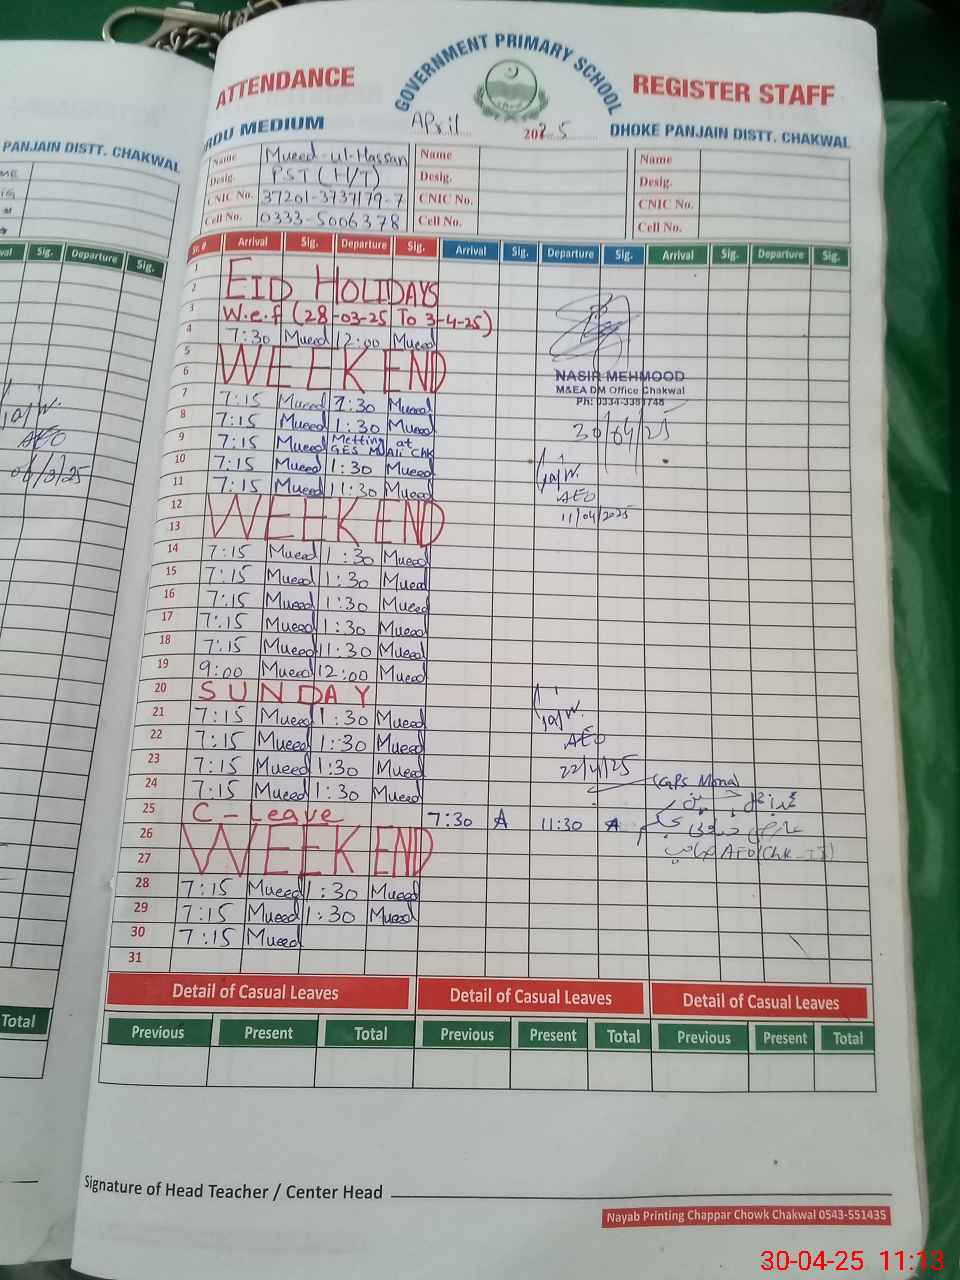 GOVERNMENT PRIMARY SCHOOL
ATTENDANCE REGISTER STAFF
RDU MEDIUM April 2025 DHOKE PANJAIN DISTT. CHAKWAL
PANJAIN DISTT. CHAKWAL
Name Mueed-ul-Hassan Name Name
Desig. PST (H/T) Desig. Desig.
CNIC No. 37201-3737179-7 CNIC No. CNIC No.
Cell No. 0333-5006378 Cell No. Cell No.
Sr. # Arrival Sig. Departure Sig. Arrival Sig. Departure Sig. Arrival Sig. Departure Sig.
Sig. Departure Sig.
1
2 EID HOLIDAYS
3 W.e.f (28-03-25 To 3-4-25)
4 7:30 Mueed 12:00 Mueed
5
6 WEEKEND
NASIR MEHMOOD
M&EA DM Office Chakwal
Ph: 0334-3381748
30/04/25
7 7:15 Mueed 1:30 Mueed
8 7:15 Mueed 1:30 Mueed
9 7:15 Mueed Metting at GES M Ali Chk
10 7:15 Mueed 1:30 Mueed
11 7:15 Mueed 11:30 Mueed
AEO
11/04/2025
AEO
12
13 WEEKEND
14 7:15 Mueed 1:30 Mueed
15 7:15 Mueed 1:30 Mueed
16 7:15 Mueed 1:30 Mueed
17 7:15 Mueed 1:30 Mueed
18 7:15 Mueed 11:30 Mueed
19 9:00 Mueed 12:00 Mueed
20 SUNDAY
21 7:15 Mueed 1:30 Mueed
22 7:15 Mueed 1:30 Mueed
AEO
22/4/25
23 7:15 Mueed 1:30 Mueed
24 7:15 Mueed 1:30 Mueed
(GPS Mona)
25 C-Leave 7:30 A 11:30 A
AEO (Chk-II)
26
27 WEEKEND
28 7:15 Mueed 1:30 Mueed
29 7:15 Mueed 1:30 Mueed
30 7:15 Mueed
31
Detail of Casual Leaves Detail of Casual Leaves Detail of Casual Leaves
Total Previous Present Total Previous Present Total Previous Present Total
Signature of Head Teacher / Center Head
Nayab Printing Chappar Chowk Chakwal 0543-551435
30-04-25 11:13